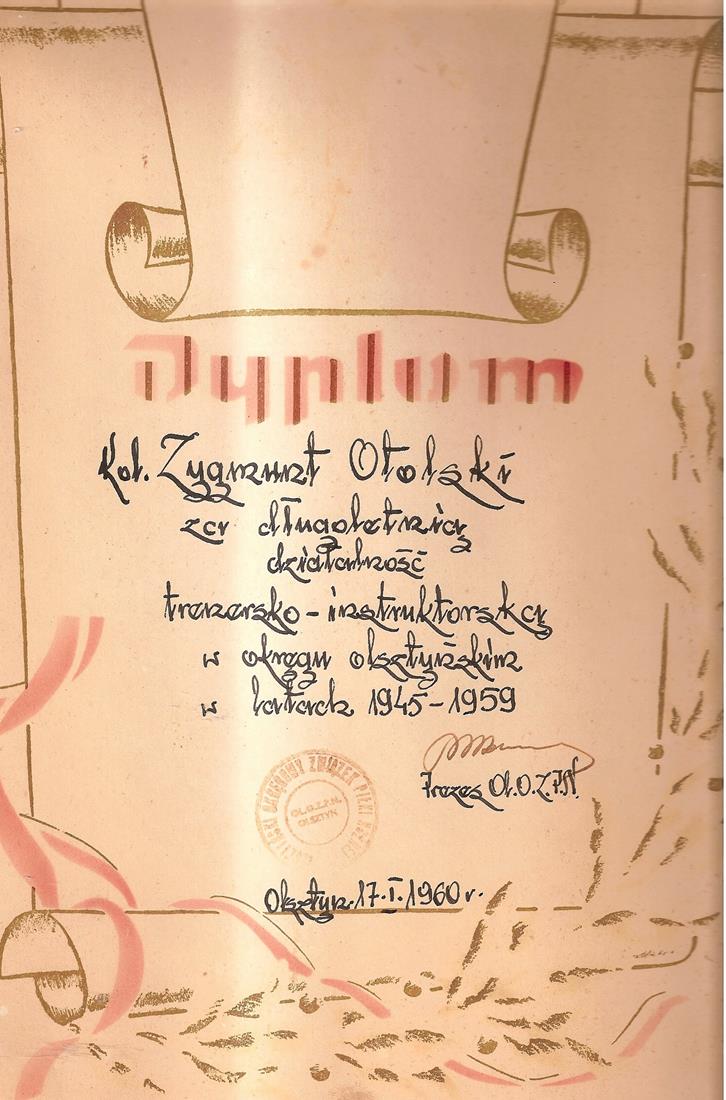 Dyplom
Kol. Zygmunt Otolski
za długoletnią
działalność
trenersko-instruktorską
w okręgu olsztyńskim
w latach 1945-1959
Prezes Ol.O.Z.P.N.
OLSZTYŃSKI OKRĘGOWY ZWIĄZEK PIŁKI NOŻNEJ
OL.O.Z.P.N.
OLSZTYN
Olsztyn 17.I.1960 r.